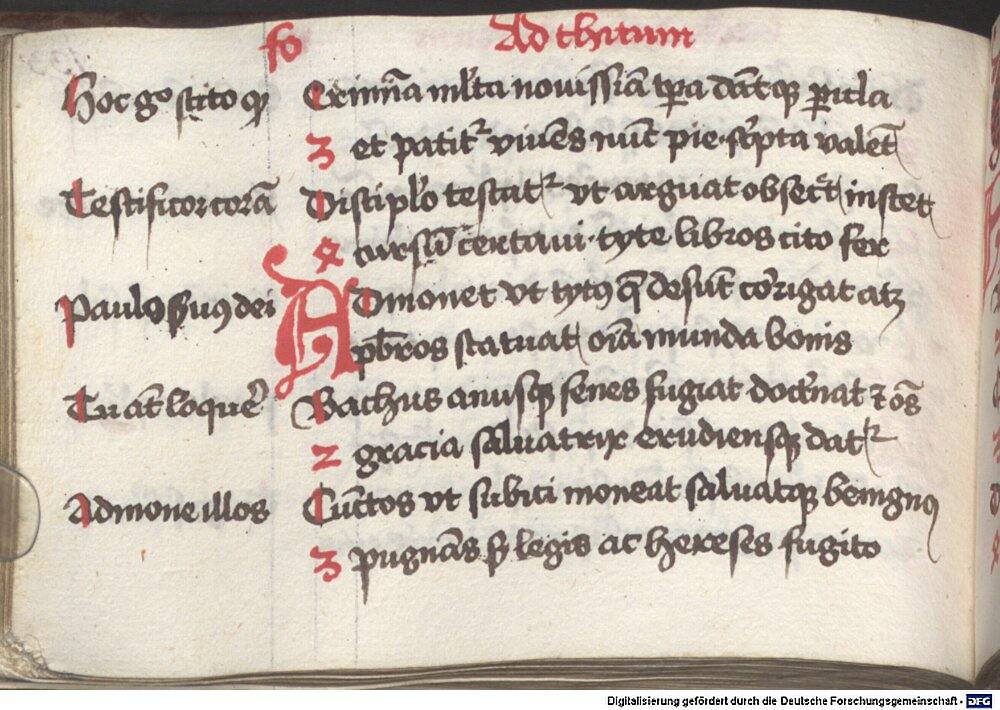 fo Ad thitum
Hoc gͦ scito qꝫ Crimīa ml̓ta nouissīa tp̄a dāt qꝫ ꝑicla
3 et patit᷑ viuēs nūc pie sc̓pta valēt
Testificor corā Discipl̓o testat᷑ vt arguat obsec̄t instet
4 cursū certaui tyte libros cito fer
Paulꝰ ẜuus dei Admonet vt tytꝰ q̄ desūt cōrigat atqꝫ
pb̄ros statuat oīa munda bonis
Tu aūt loquer̄ Bachus anusqꝫ senes fugiat doct̓nat ⁊ oēs
2 gracia saluatrix erudiensqꝫ dat᷑
Admone illos Cūctos vt subici moneat saluatqꝫ benignꝰ
3 pugnās ꝑ legis ac hereses fugito
Digitalisierung gefördert durch die Deutsche Forschungsgemeinschaft - DFG